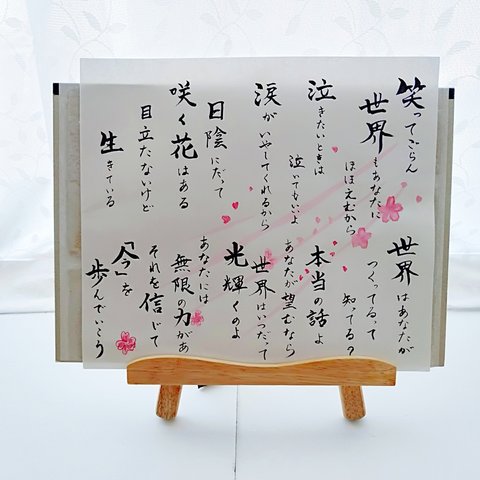 笑ってごらん
世界もあなたに
ほほえむから
泣きたいときは
泣いてもいいよ
涙がいやしてくれるから
日陰にだって
咲く花はある
目立たないけど
生きている
世界はあなたが
つくってるって
知ってる?
本当の話よ
あなたが望むなら
世界はいつだって
光輝くのよ
あなたには
無限の力があ
それを信じて
「今」を
歩んでいこう